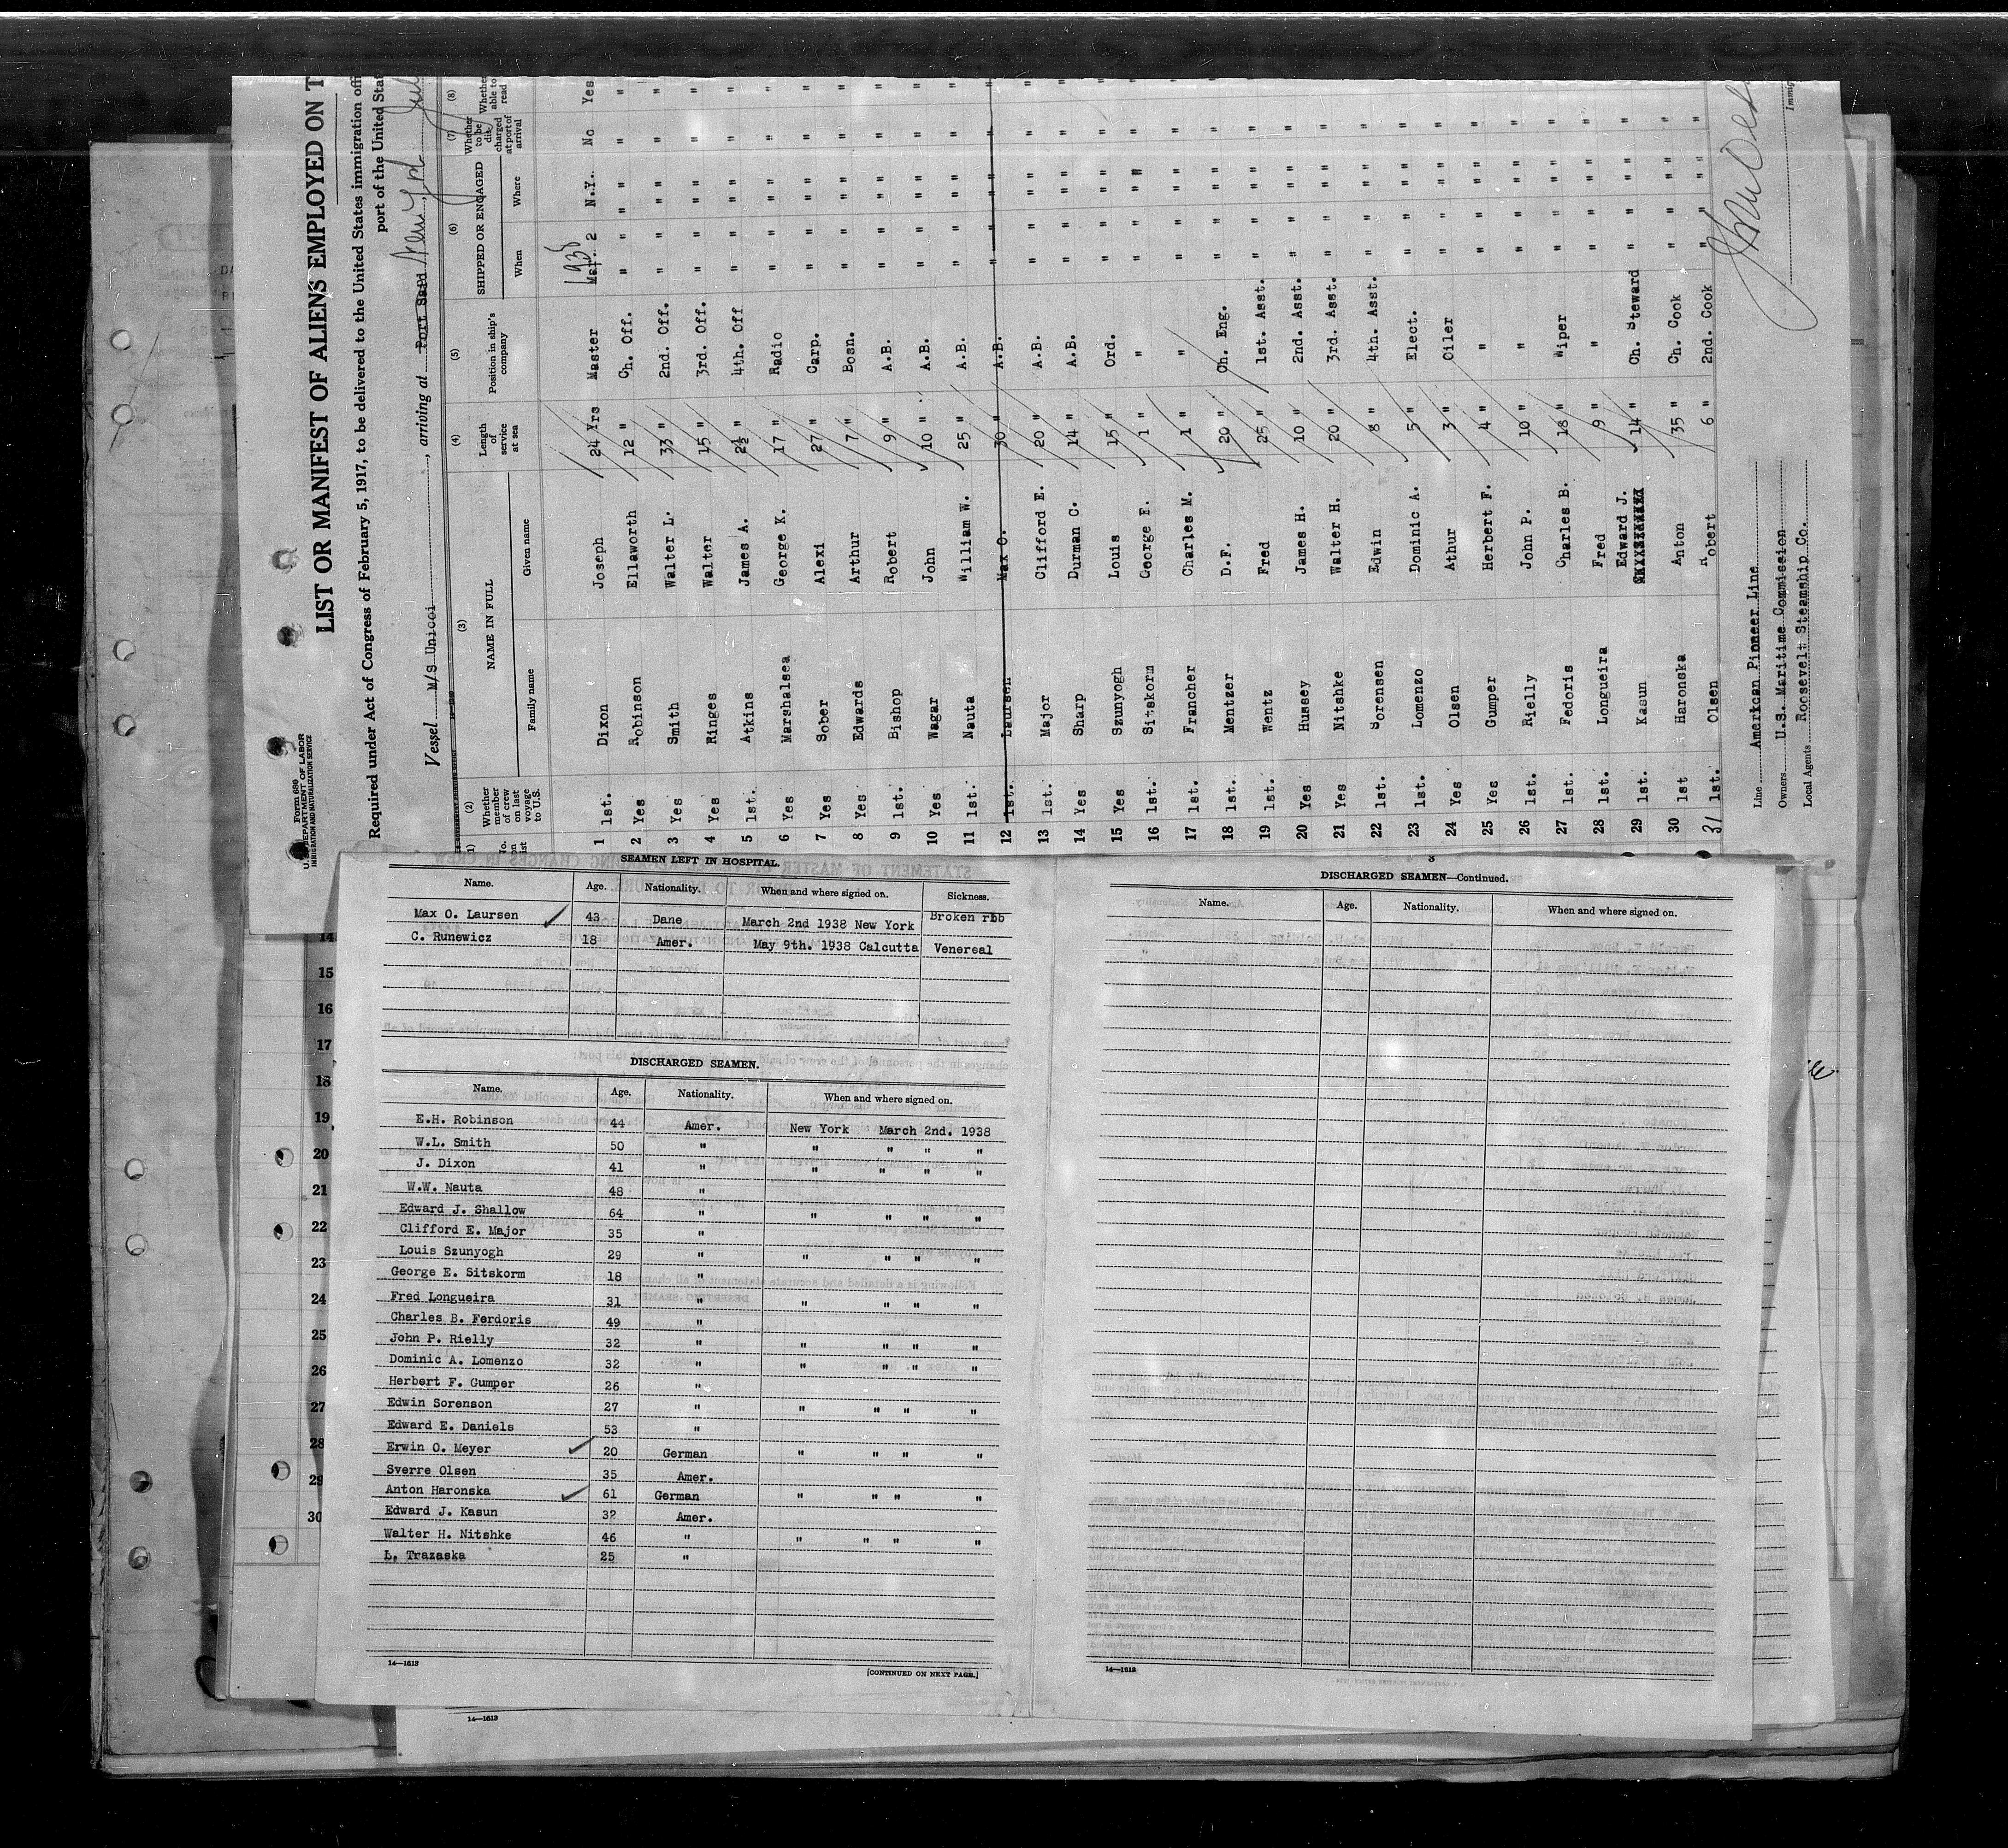 LIST OR MANIFEST OF ALIENS EMPLOYED ON T
Form 680
U. S. DEPARTMENT OF LABOR
IMMIGRATION AND NATURALIZATION SERVICE
Required under Act of Congress of February 5, 1917, to be delivered to the United States immigration offi
port of the United Stat
Vessel M/S Unicoi, arriving at Port Said New York
(1) (2) (3) (4) (5) (6) (7) (8)
No. on list
Whether member of crew on last voyage to U.S.
NAME IN FULL
Family name Given name
Length of service at sea
Position in ship's company
SHIPPED OR ENGAGED
When Where
Whether to be discharged at port of arrival
Whether able to read
1938
1 1st. Dixon Joseph 24 Yrs Master Mar. 2 N.Y. No Yes
2 Yes Robinson Ellsworth 12 " Ch. Off. " " " " "
3 Yes Smith Walter L. 33 " 2nd. Off. " " " " "
4 Yes Ringes Walter 15 " 3rd. Off. " " " " "
5 1st. Atkins James A. 2½ " 4th. Off " " " " "
6 Yes Marshalsea George K. 17 " Radio " " " " "
7 Yes Sober Alexi 27 " Carp. " " " " "
8 Yes Edwards Arthur 7 " Bosn. " " " " "
9 1st. Bishop Robert 9 " A.B. " " " " "
10 Yes Wagar John 10 " A.B. " " " " "
11 1st. Nauta William W. 25 " A.B. " " " " "
12 1st. Laursen Max O. 30 " A.B. " " " " "
13 1st. Major Clifford E. 20 " A.B. " " " " "
14 Yes Sharp Durman C. 14 " A.B. " " " " "
15 Yes Szunyogh Louis 15 " Ord. " " " " "
16 1st. Sitskorm George E. 1 " " " " " " "
17 Francher Charles M. 1 " " " " " " "
18 1st. Mentzer D.F. 20 " Ch. Eng. " " " " "
19 1st. Wentz Fred 25 " 1st. Asst. " " " " "
20 Yes Hussey James H. 10 " 2nd. Asst. " " " " "
21 Yes Nitshke Walter H. 20 " 3rd. Asst. " " " " "
22 1st. Sorensen Edwin 8 " 4th. Asst. " " " " "
23 1st. Lomenzo Dominic A. 5 " Elect. " " " " "
24 Yes Olsen Athur 3 " Oiler " " " " "
25 Yes Gumper Herbert F. 4 " " " " " " "
26 1st. Rielly John P. 10 " " " " " " "
27 1st. Fedoris Charles B. 18 " Wiper " " " " "
28 1st. Longueira Fred 9 " " " " " " "
29 1st. Kasun Edward J. 14 " Ch. Steward " " " " "
30 1st Haronska Anton 35 " Ch. Cook " " " " "
31 1st. Olsen Robert 6 " 2nd. Cook " " " " "
Line American Pioneer Line
Owners U.S. Maritime Commission
Local Agents Roosevelt Steamship Co.
Immig
14
15
16
17
18
19
20
21
22
23
24
25
26
27
28
29
30
SEAMEN LEFT IN HOSPITAL.
Name. Age. Nationality. When and where signed on. Sickness.
Max O. Laursen 43 Dane March 2nd 1938 New York Broken rbb
C. Runewicz 18 Amer. May 9th. 1938 Calcutta Venereal
DISCHARGED SEAMEN.
Name. Age. Nationality. When and where signed on.
E.H. Robinson 44 Amer. New York March 2nd. 1938
W.L. Smith 50 " " " " "
J. Dixon 41 " " " " "
W.W. Nauta 48 "
Edward J. Shallow 64 " " " " "
Clifford E. Major 35 "
Louis Szunyogh 29 " " " " "
George E. Sitskorm 18 "
Fred Longueira 31 " " " " "
Charles B. Ferdoris 49 "
John P. Rielly 32 " " " " "
Dominic A. Lomenzo 32 " " " " "
Herbert F. Gumper 26 "
Edwin Sorenson 27 " " " " "
Edward E. Daniels 53 "
Erwin O. Meyer 20 German " " " "
Sverre Olsen 35 Amer.
Anton Haronska 61 German " " " "
Edward J. Kasun 32 Amer.
Walter H. Nitshke 46 " " " " "
L. Trazaska 25 "
14—1613
[CONTINUED ON NEXT PAGE.]
8
DISCHARGED SEAMEN—Continued.
Name. Age. Nationality. When and where signed on.
14—1613
14—1613